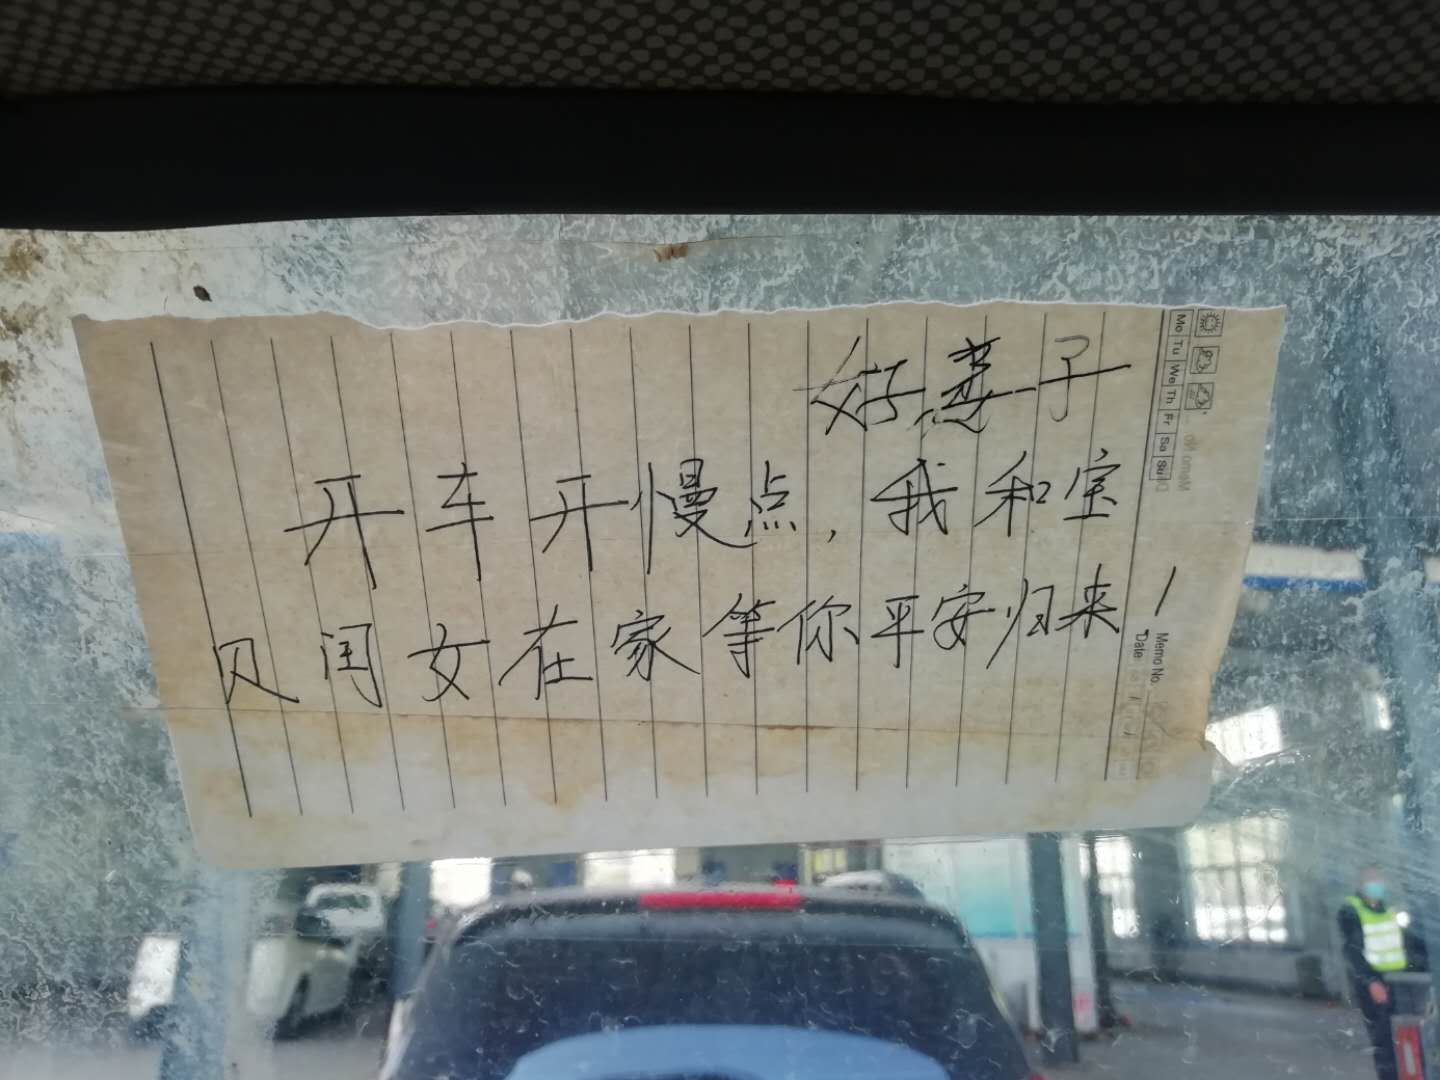 好燕子
开车开慢点，我和宝
贝闺女在家等你平安归来！
Mo Tu We Th Fr Sa Su
Memo No.
Date
Memo No.